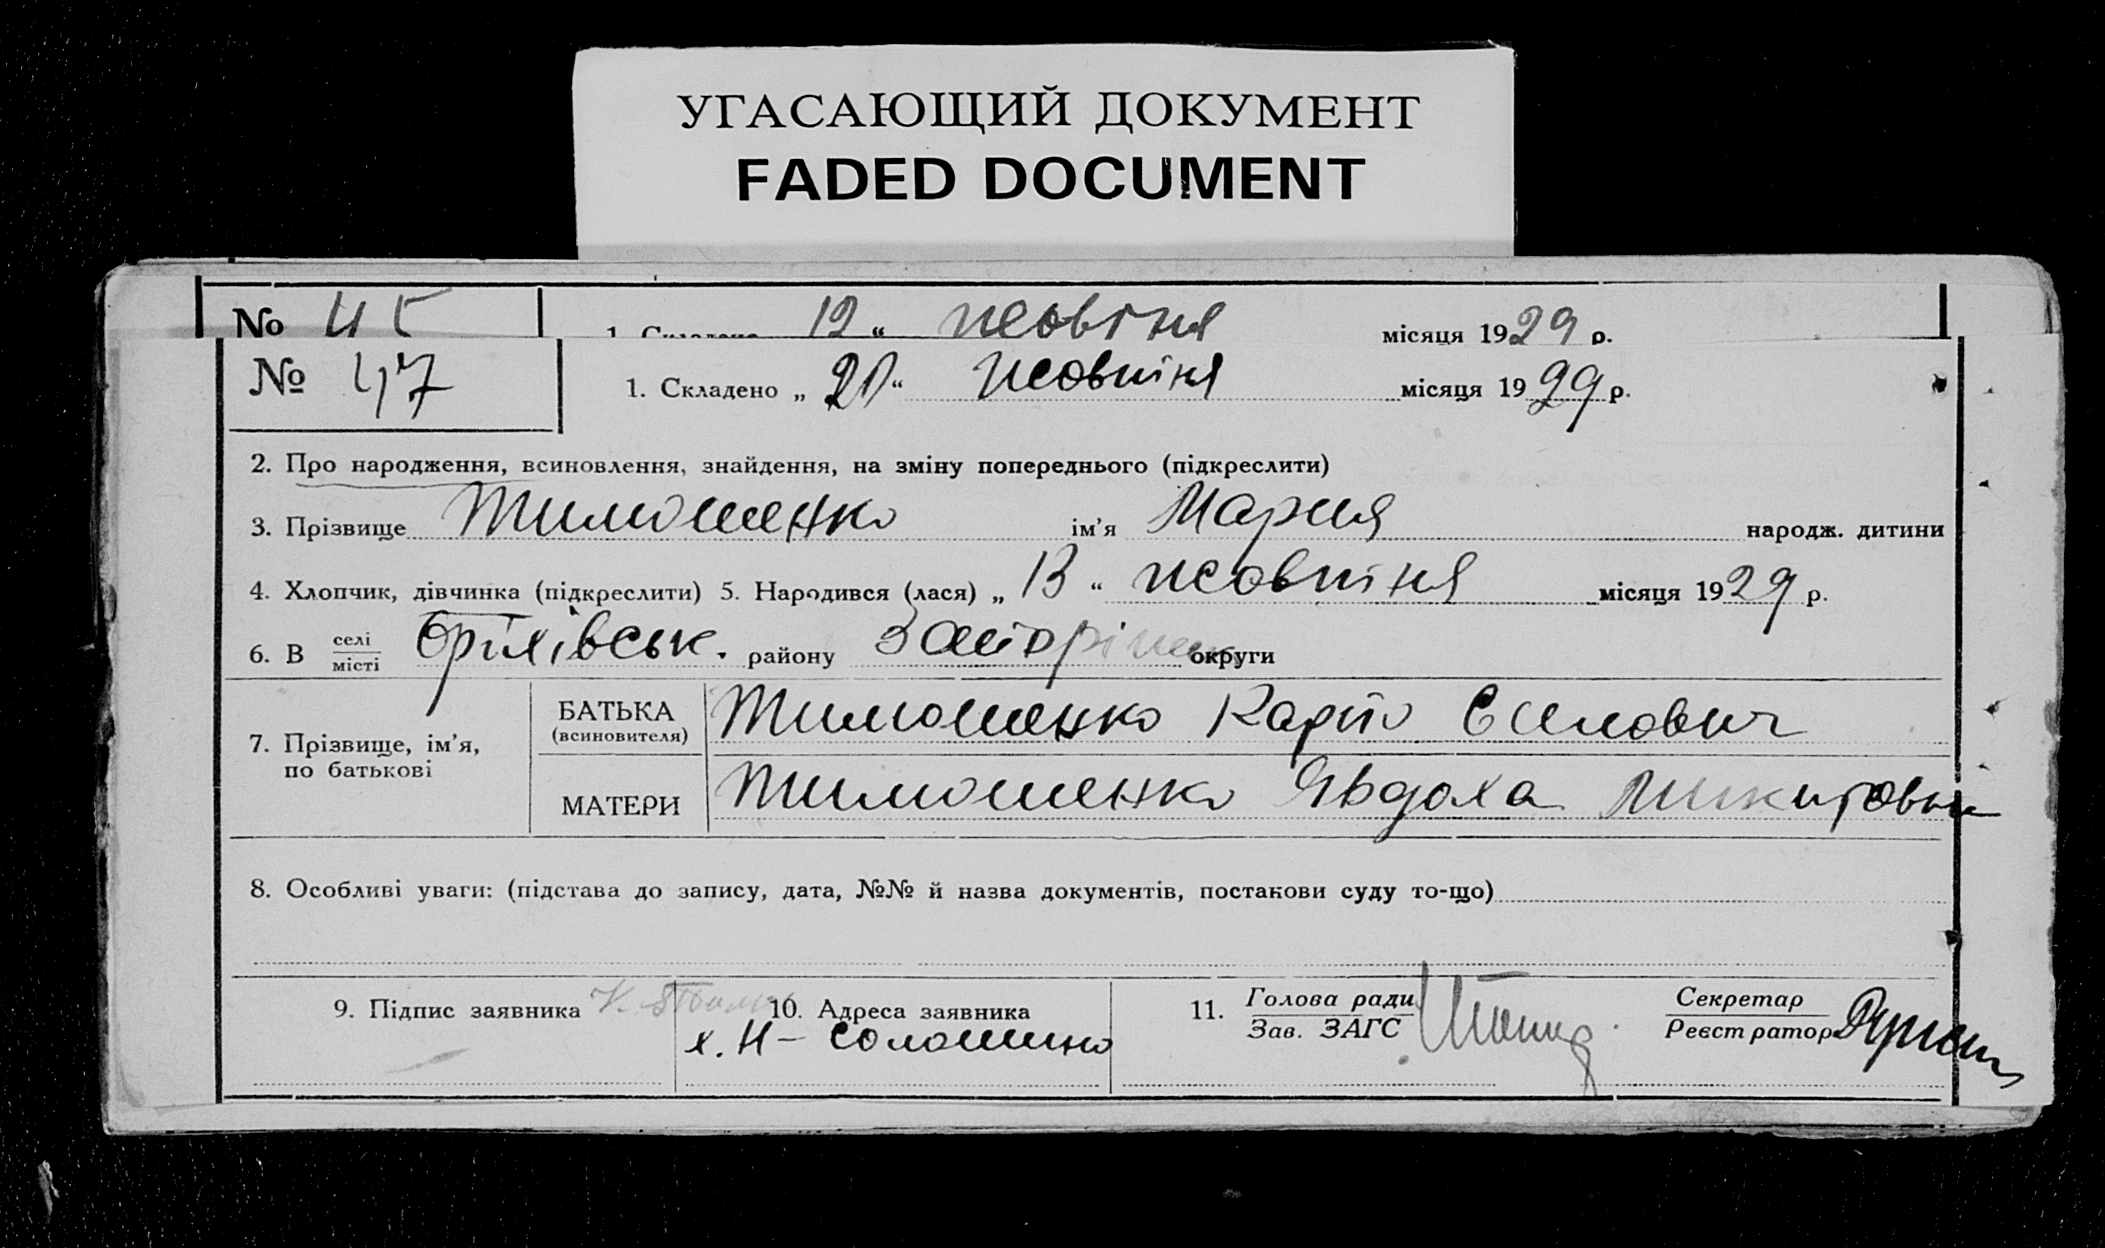 УГАСАЮЩИЙ ДОКУМЕНТ
FADED DOCUMENT
№ 45 1. Складено 12 “ жовтня місяця 1929 р.
№ 47 1. Складено „ 20 “ жовтня місяця 1929 р.
2. Про народження, всиновлення, знайдення, на зміну попереднього (підкреслити)
3. Прізвище Тимошенко ім’я Мария народж. дитини
4. Хлопчик, дівчинка (підкреслити) 5. Народився (лася) „ 13 “ жовтня місяця 1929 р.
6. В селі місті Оріхівськ. району Запоріжк округи
7. Прізвище, ім’я, по батькові
БАТЬКА (всиновителя) Тимошенко Карпо
МАТЕРИ Тимошенко Явдоха Микитовна
8. Особливі уваги: (підстава до запису, дата, №№ й назва документів, постанови суду то-що)
9. Підпис заявника
10. Адреса заявника
х. Н-Солошино
11. Голова ради Зав. ЗАГС
Секретар Реєстратор